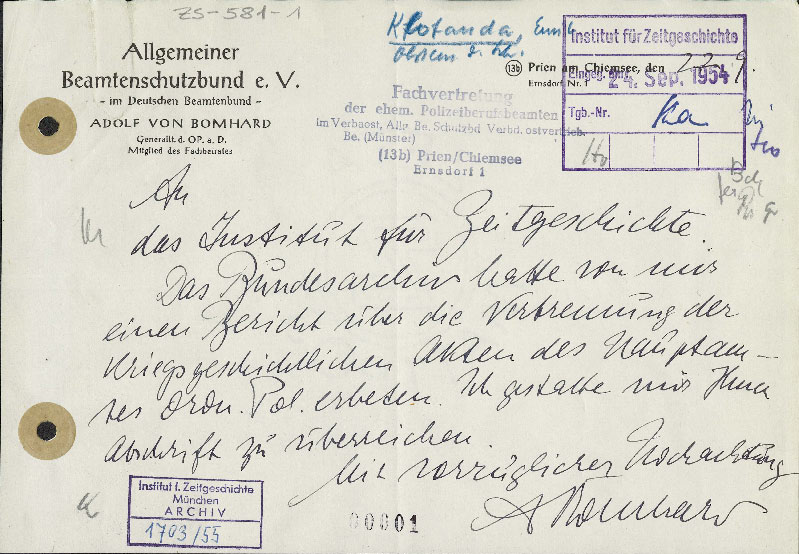 ZS-581-1
Allgemeiner
Beamtenschutzbund e. V.
- im Deutschen Beamtenbund -
ADOLF VON BOMHARD
Generallt. d. OP. a. D.
Mitglied des Fachbeirates
Klotanda,
(13b) Prien am Chiemsee, den 22. 9.
Ernsdorf Nr. 1
Fachvertretung
der ehem. Polizeiberufsbeamten
im Verbaost, Allg. Be. Schutzbd. Verbd. ostvertrieb.
Be. (Münster)
(13b) Prien/Chiemsee
Ernsdorf 1
Institut für Zeitgeschichte
Eingeg. am: 24. Sep. 1954
Tgb.-Nr. Ka
An
das Institut für Zeitgeschichte.
Das Bundesarchiv hatte von mir
einen Bericht über die Verbrennung der
Kriegsgeschichtlichen Akten des Hauptam-
tes Ordn. Pol. erbeten. Ich gestatte mir Ihnen
Abschrift zu überreichen.
Mit vorzüglicher Hochachtung
A Bomhard
Institut f. Zeitgeschichte
München
ARCHIV
1703/55
00001